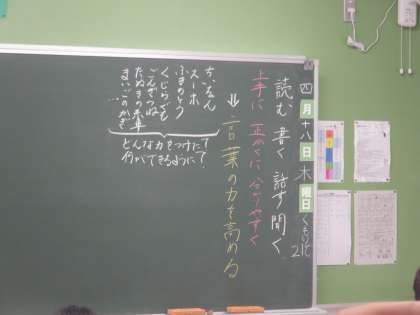 四月十八日木曜日
読む 書く 話す 聞く
上手に 正かくに 分かりやすく
⇓言葉の力を高める
スーホ
ふきのとう
くじらぐも
ごんぎつね
たぬきの糸車
まいごのかぎ
…
どんな力をつけた?
何ができるように?